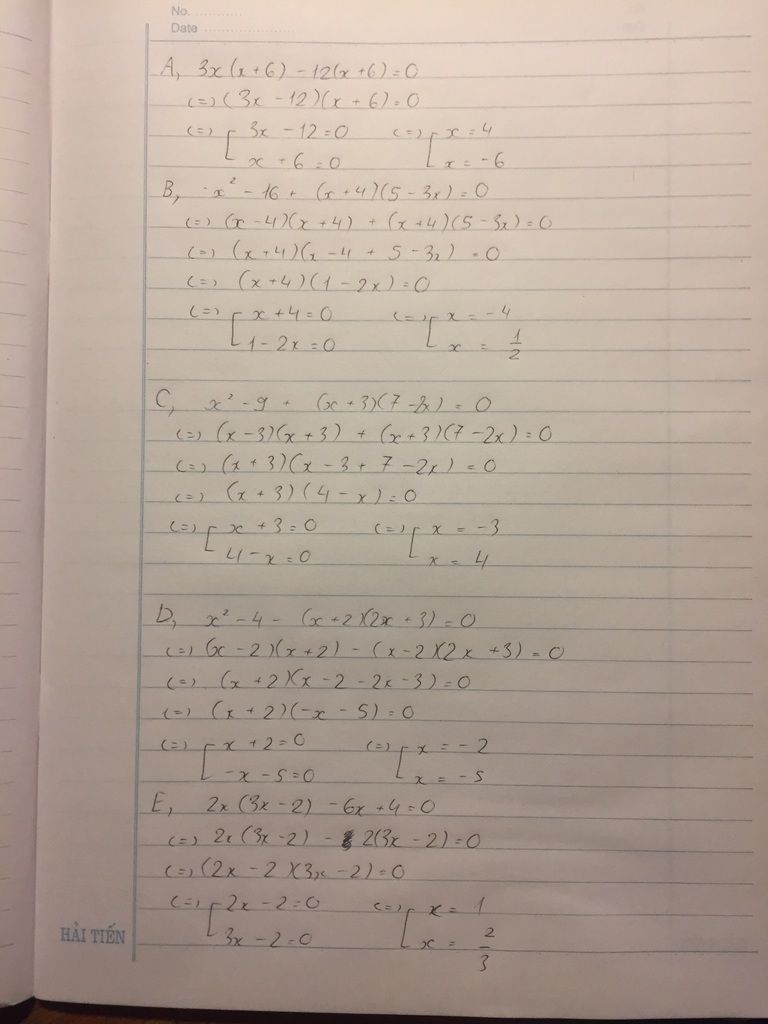 No. ............
Date ......................
A, 3x(x+6) - 12(x+6) = 0
(=) (3x - 12)(x + 6) = 0
(=) [ 3x - 12 = 0 (=) [ x = 4
x + 6 = 0 x = -6
B, x² - 16 + (x+4)(5 - 3x) = 0
(=) (x - 4)(x + 4) + (x+4)(5 - 3x) = 0
(=) (x+4)(x - 4 + 5 - 3x) = 0
(=) (x+4)(1 - 2x) = 0
(=) [ x + 4 = 0 (=) [ x = -4
1 - 2x = 0 x = 1/2
C, x² - 9 + (x+3)(7 - 2x) = 0
(=) (x - 3)(x + 3) + (x+3)(7 - 2x) = 0
(=) (x + 3)(x - 3 + 7 - 2x) = 0
(=) (x + 3)(4 - x) = 0
(=) [ x + 3 = 0 (=) [ x = -3
4 - x = 0 x = 4
D, x² - 4 - (x+2)(2x + 3) = 0
(=) (x - 2)(x + 2) - (x - 2)(2x + 3) = 0
(=) (x + 2)(x - 2 - 2x - 3) = 0
(=) (x + 2)(-x - 5) = 0
(=) [ x + 2 = 0 (=) [ x = -2
-x - 5 = 0 x = -5
E, 2x(3x - 2) - 6x + 4 = 0
(=) 2x(3x - 2) - 2(3x - 2) = 0
(=) (2x - 2)(3x - 2) = 0
(=) [ 2x - 2 = 0 (=) [ x = 1
3x - 2 = 0 x = 2/3
HẢI TIẾN